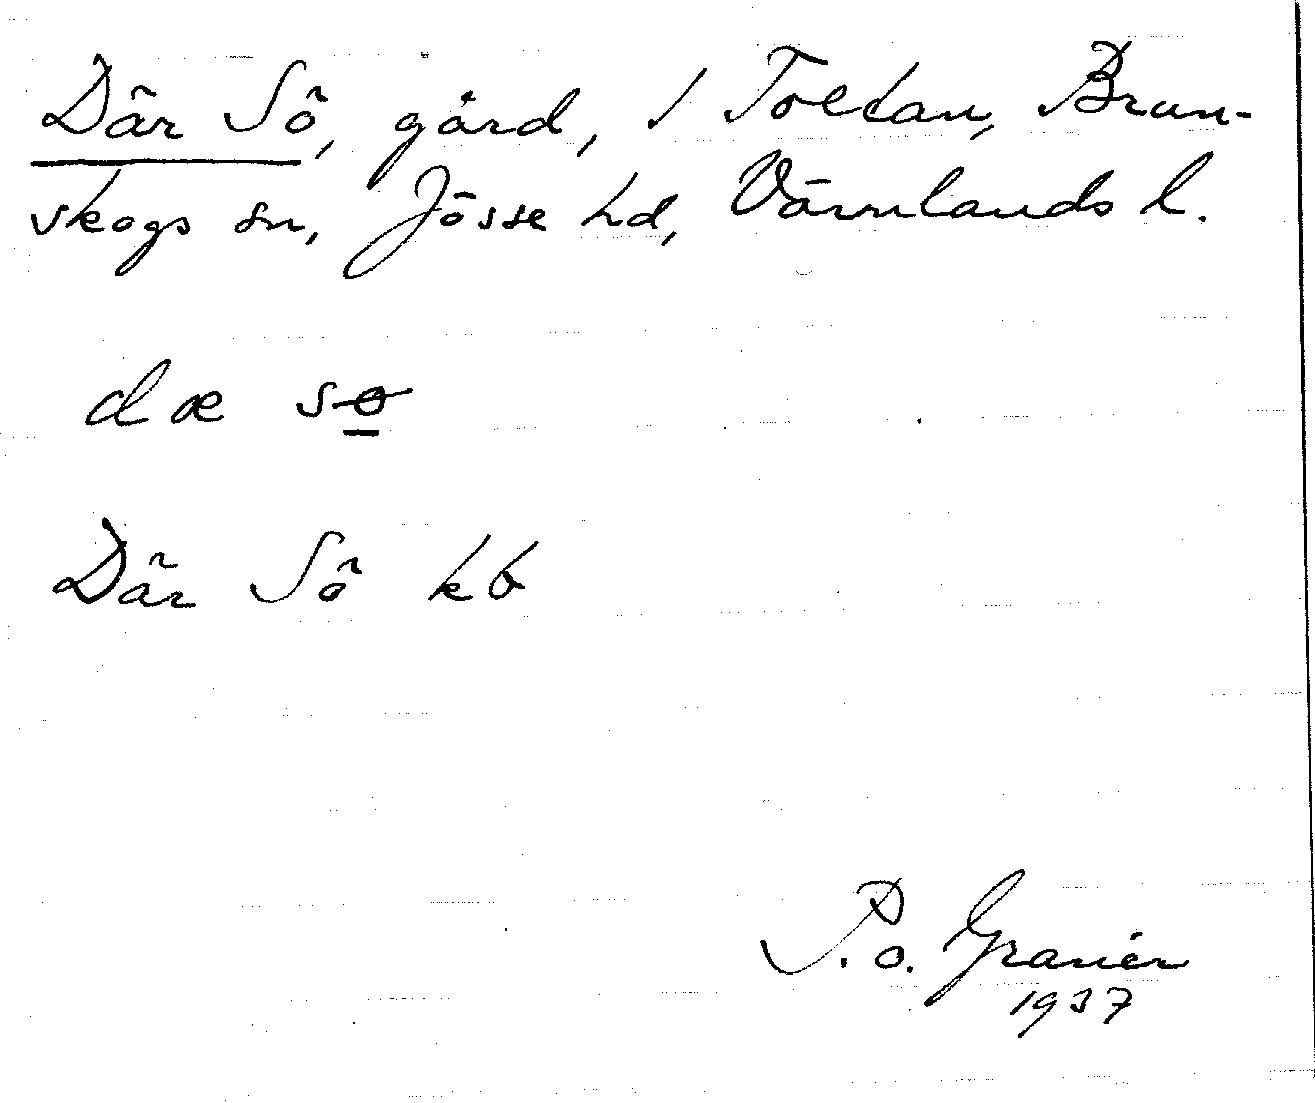 Där Sö, gård, 1 Tolvan, Brun-
skogs sn, Jösse hd, Värmlands l.
dæ sɵ
Där Sö kb
P. O. Granér
1937